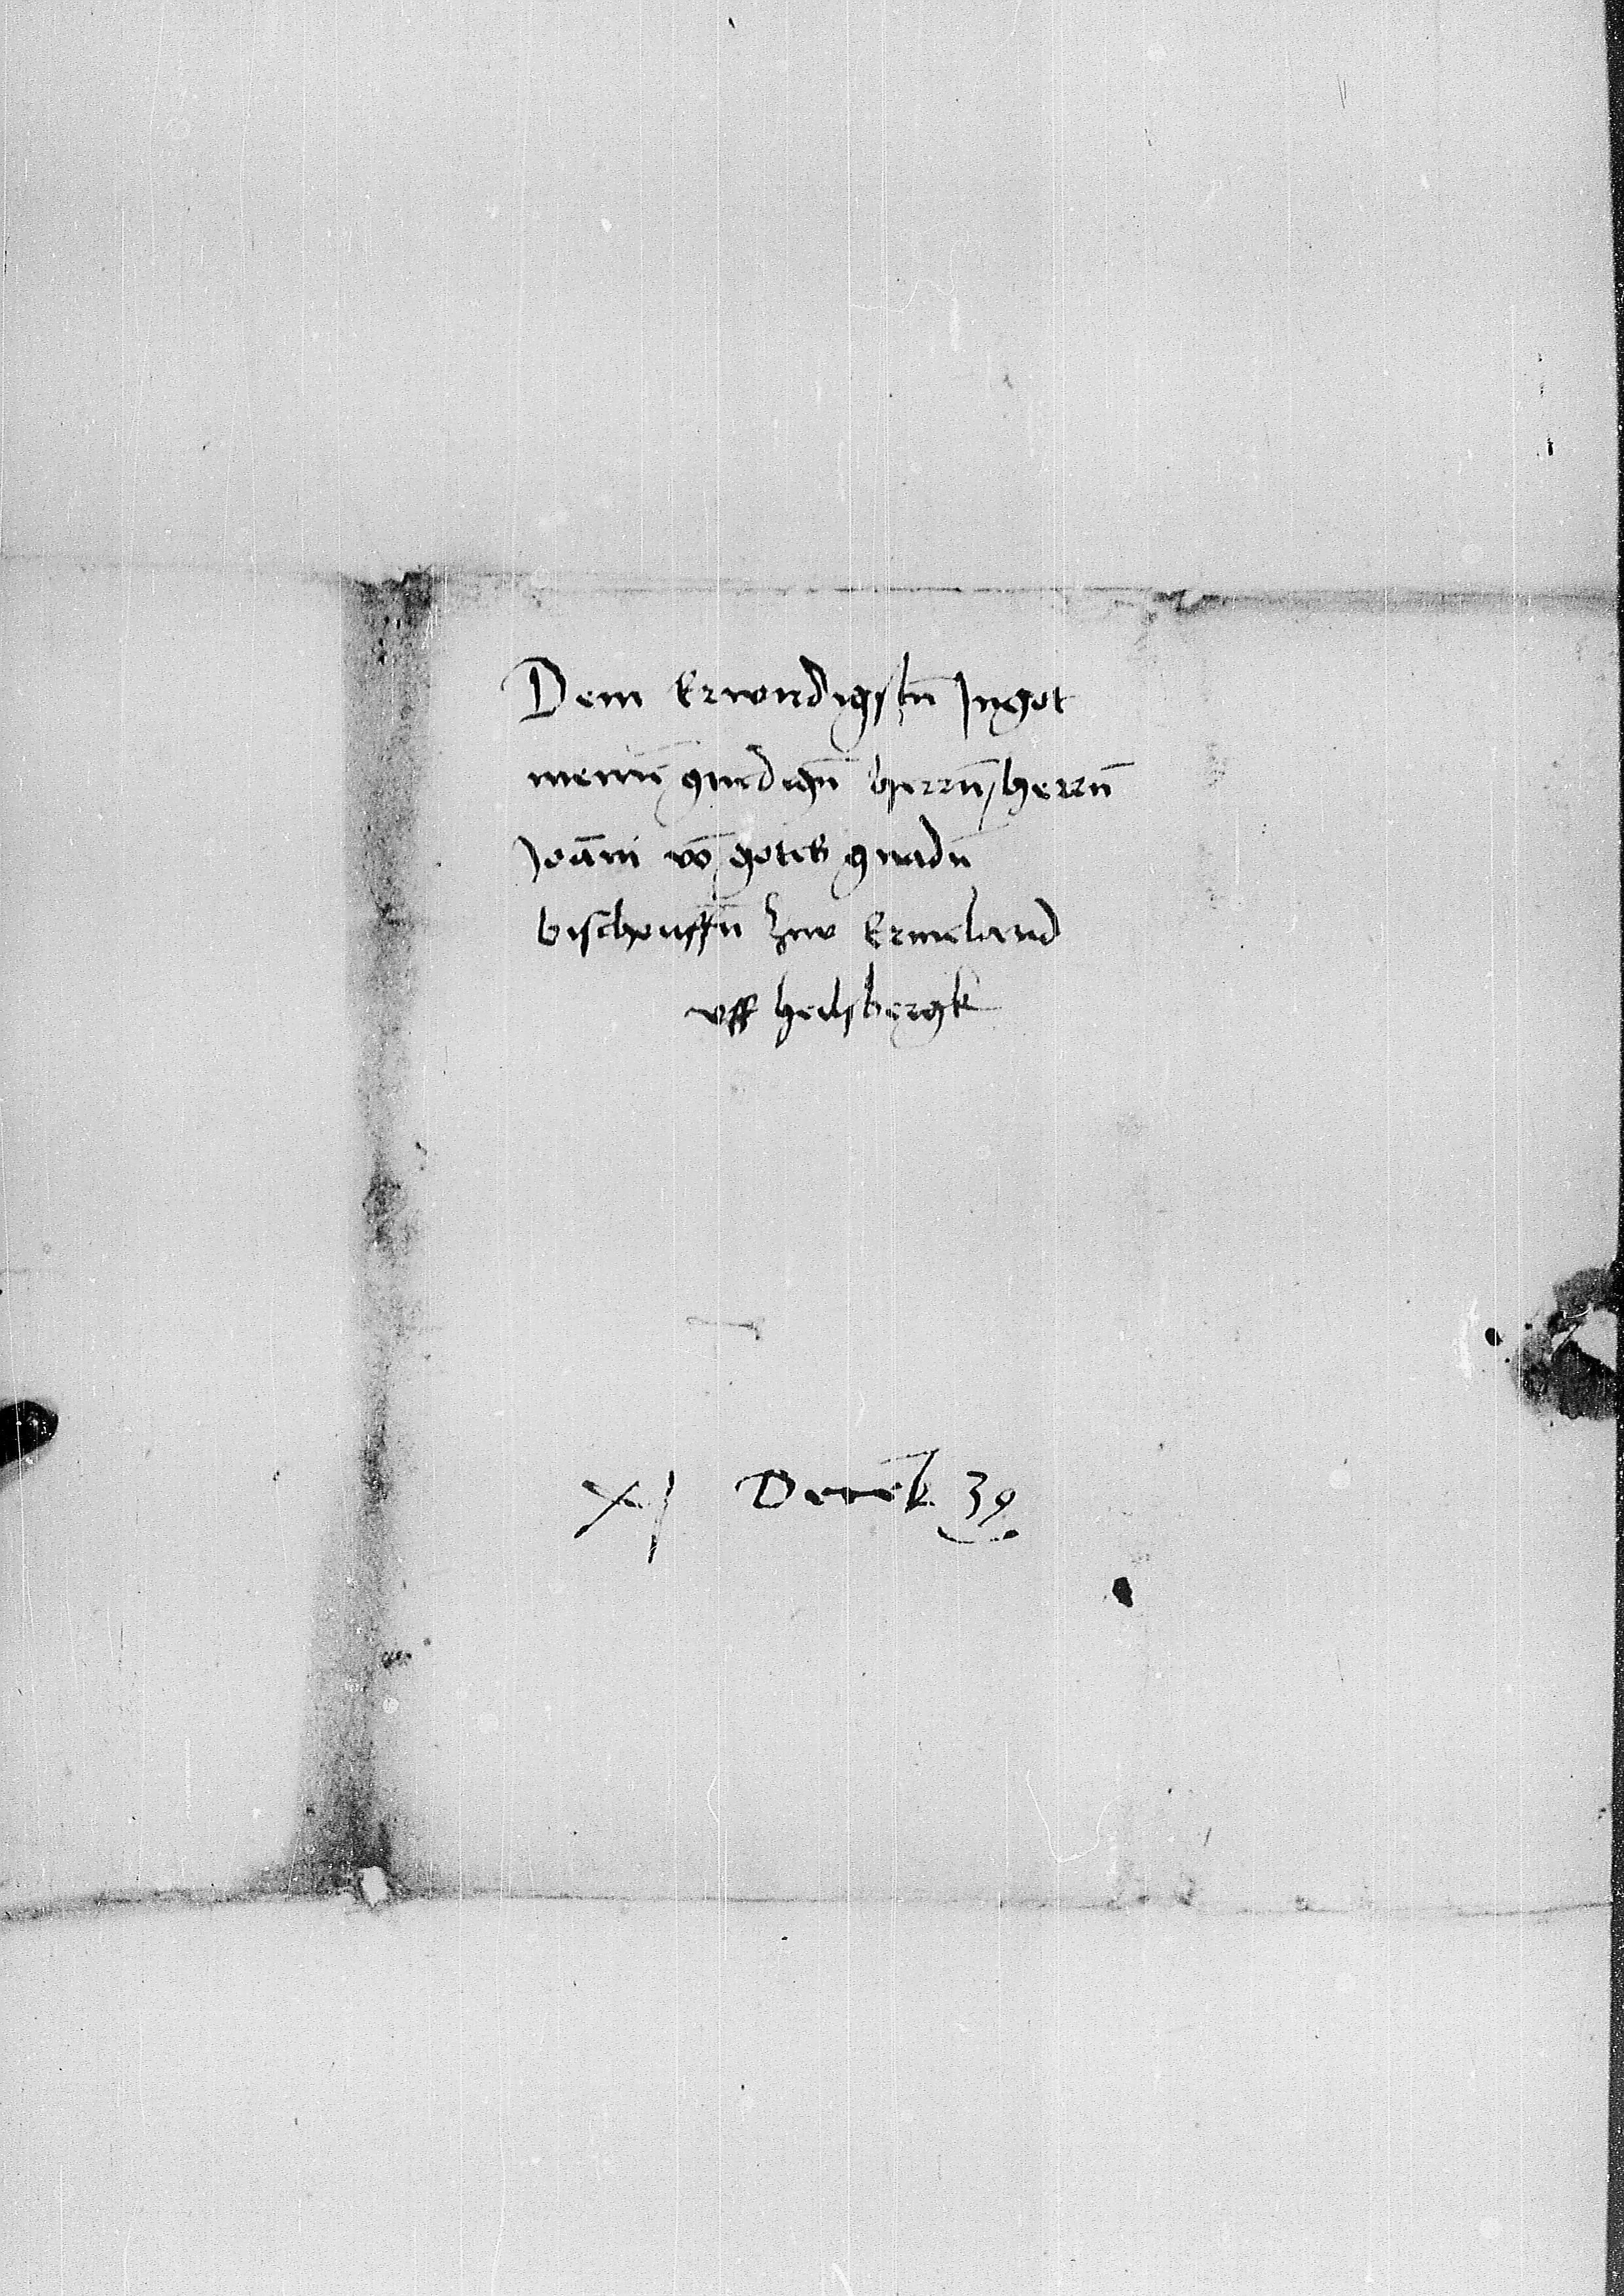 Dem Erwirdigstn̄ Jngot
meinn̄ gnedign̄ herrn̄ / herrn̄
Joāni vō gotes gnadn̄
bischouffn̄ zuw Ermeland
vff heilsbergk
XI Decēb. 39